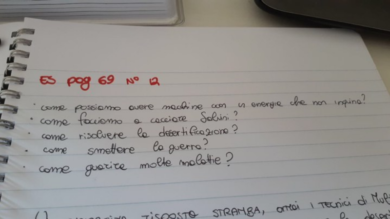 ES pag 69 N° 12
· come possiamo avere macchine con un energia che non inquina?
· come facciamo a cacciare Salvini?
· come risolvere la desertificazione?
· come smettere la guerra?
come guarire molte malattie?
RISPOSTA STRAMBA, ormai i tecnici di